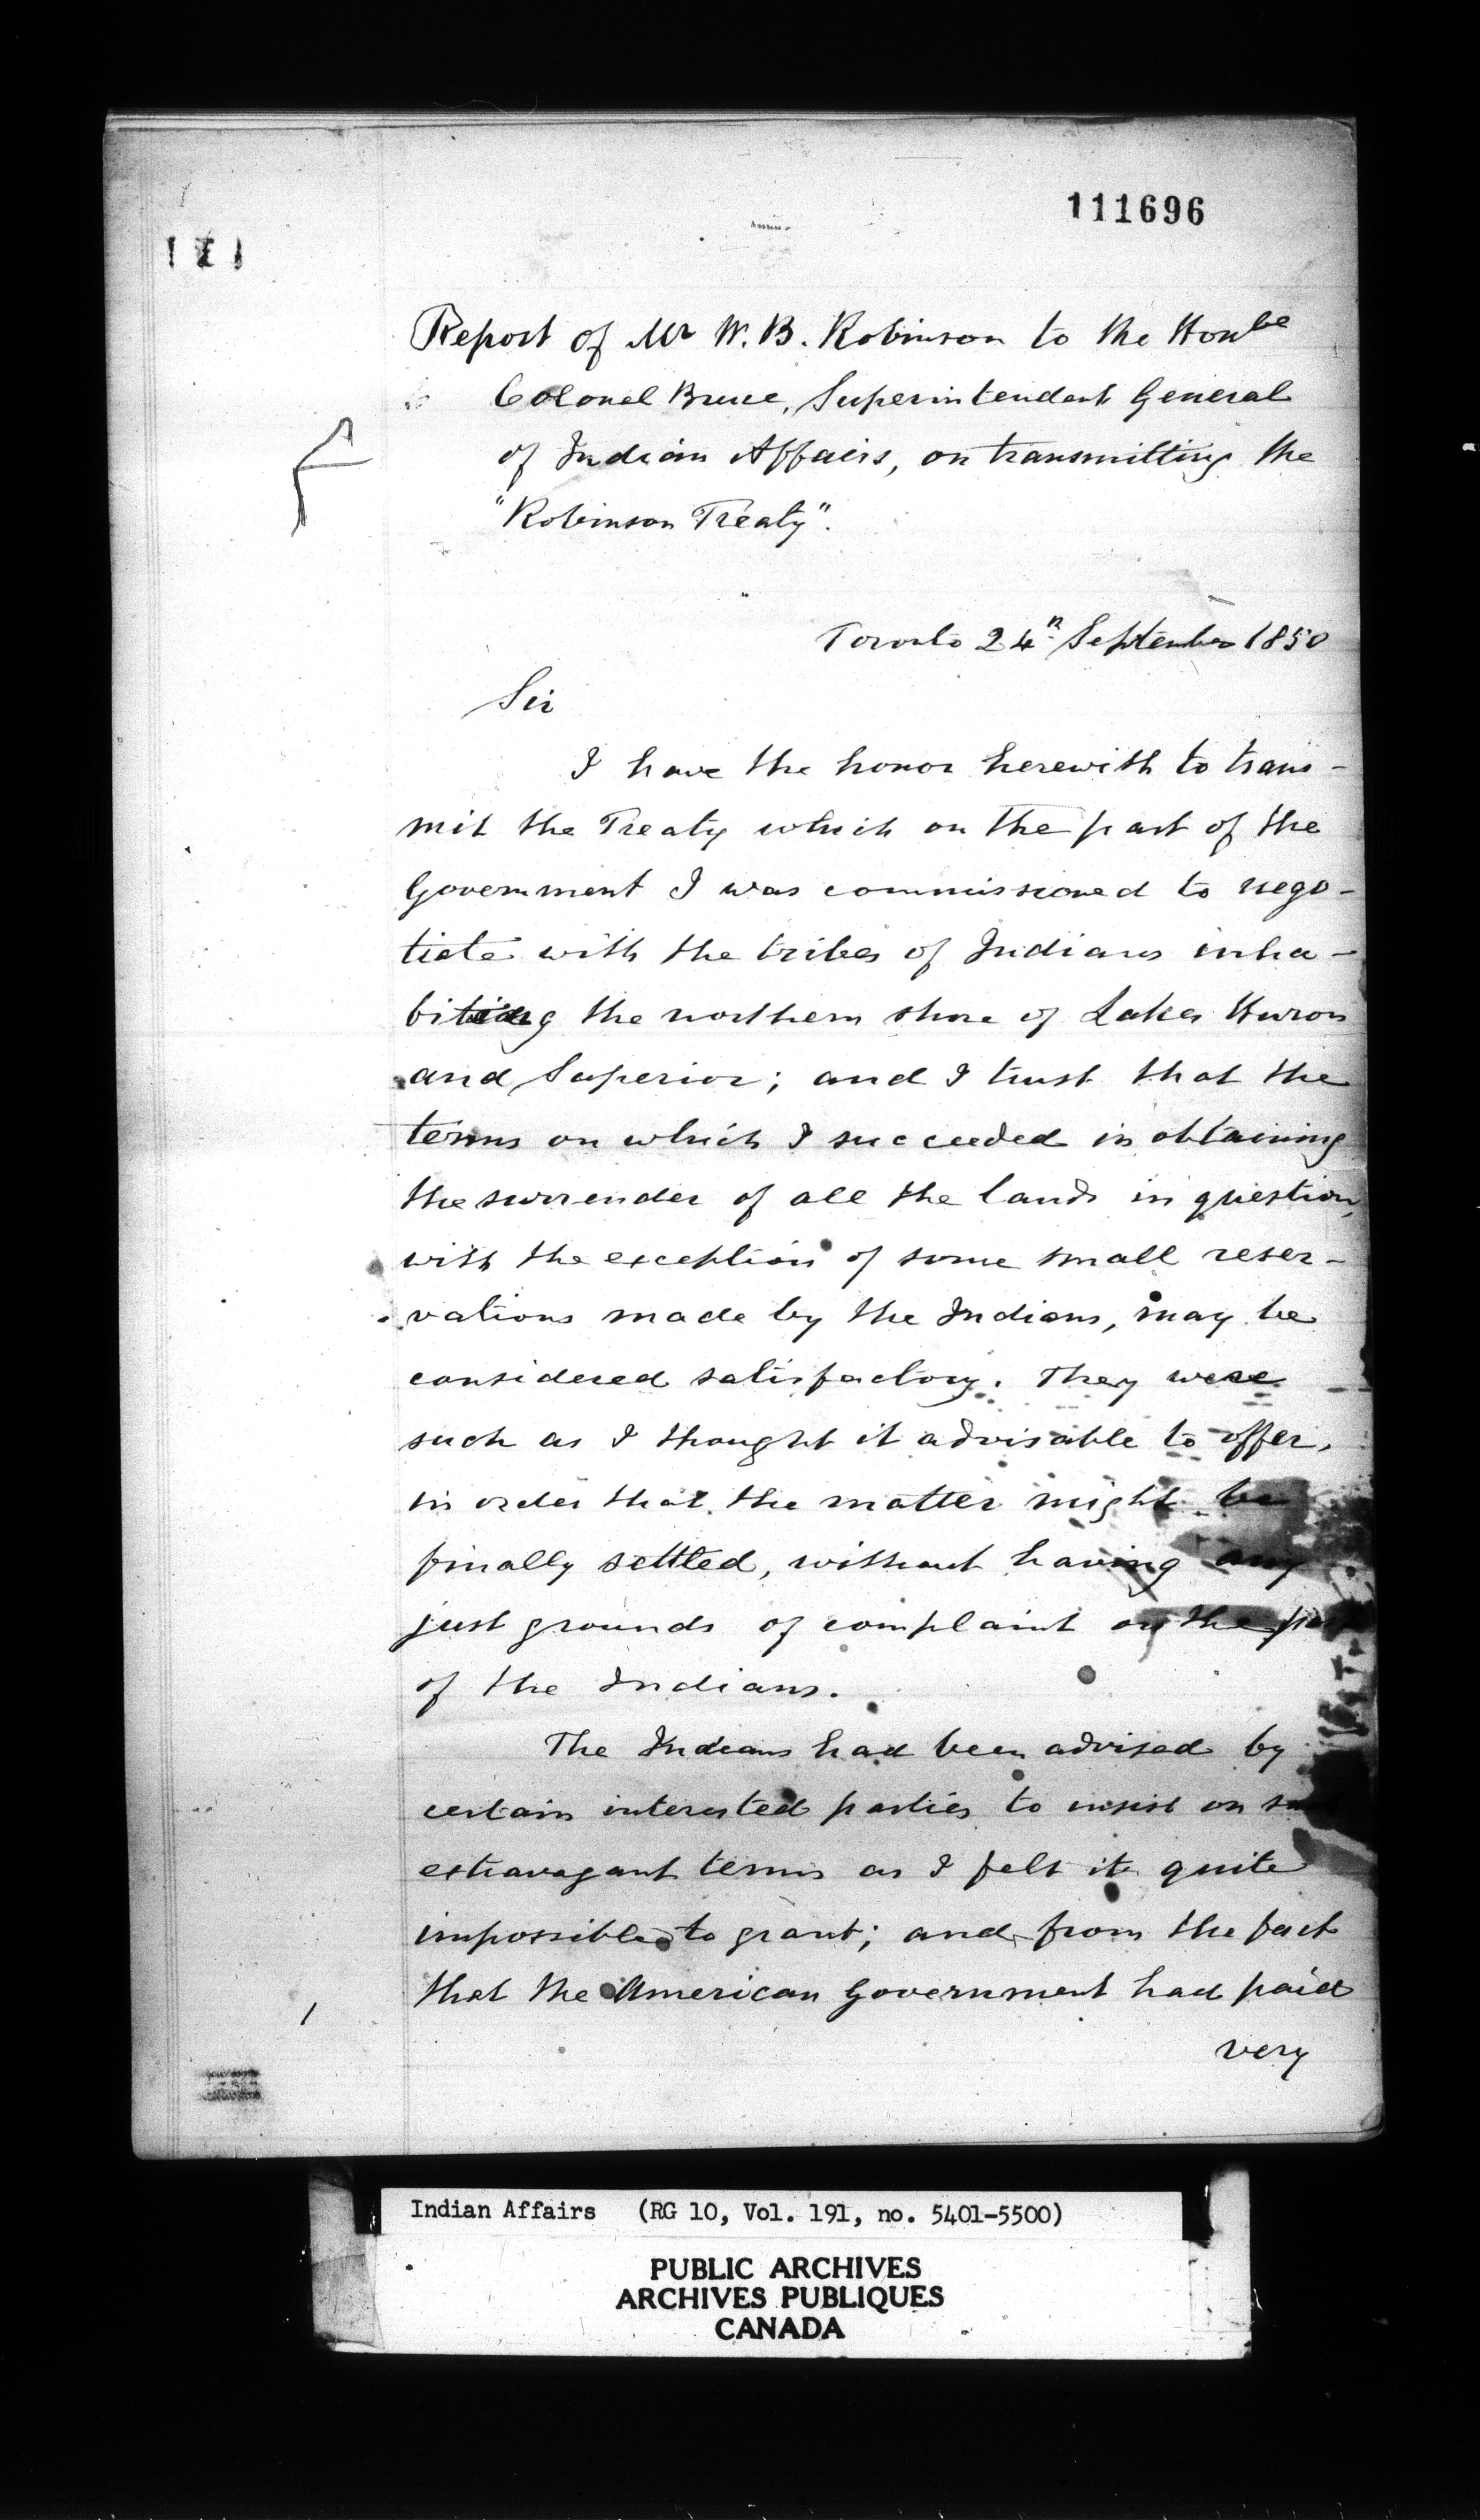 111696
Report of Mr W. B. Robinson to the Honble
Colonel Bruce, Superintendent General
of Indian Affairs, on transmitting the
"Robinson Treaty".
Toronto 24th September 1850
Sir
I have the honor herewith to trans-
mit the Treaty which on the part of the
Government I was commissioned to nego-
tiate with the tribes of Indians inha-
biting the northern shore of Lakes Huron
and Superior; and I trust that the
terms on which I succeeded in obtaining
the surrender of all the lands in question,
with the exception of some small reser-
vations made by the Indians, may be
considered satisfactory. They were
such as I thought it advisable to offer,
in order that the matter might be
finally settled, without having any
just grounds of complaint on the part
of the Indians.
The Indians had been advised by
certain interested parties to insist on
extravagant terms as I felt it quite
impossible to grant; and from the fact
that the American Government had paid
very
Indian Affairs (RG 10, Vol. 191, no. 5401-5500)
PUBLIC ARCHIVES
ARCHIVES PUBLIQUES
CANADA